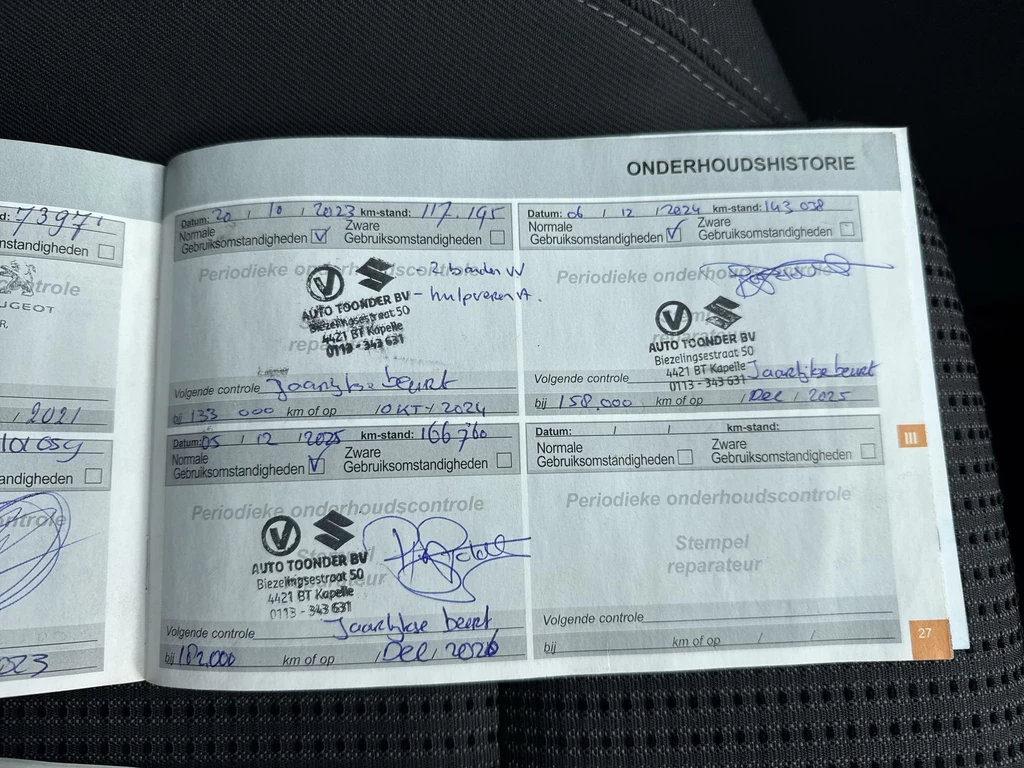 ONDERHOUDSHISTORIE
d: 7397
nstandigheden
trole
UGEOT
R.
, 2021
andigheden
ntrole
023
Datum: 20 / 10 / 2023 km-stand: 117.195
Normale
Gebruiksomstandigheden
Zware
Gebruiksomstandigheden
Periodieke onderhoudscontrole
- 2 banden VV
- hulpveren A.
AUTO TOONDER BV
Biezelingsestraat 50
4421 BT Kapelle
0113 - 343 631
Volgende controle Jaarlijkse beurt
bij 133 000 km of op / OKT / 2024
Datum: 06 / 12 / 2024 km-stand: 143 038
Normale
Gebruiksomstandigheden
Zware
Gebruiksomstandigheden
Periodieke onderhoudscontrole
AUTO TOONDER BV
Biezelingsestraat 50
4421 BT Kapelle
0113 - 343 631
Volgende controle Jaarlijkse beurt
bij 158.000 km of op / Dec / 2025
Datum: 05 / 12 / 2025 km-stand: 166 760
Normale
Gebruiksomstandigheden
Zware
Gebruiksomstandigheden
Periodieke onderhoudscontrole
AUTO TOONDER BV
Biezelingsestraat 50
4421 BT Kapelle
0113 - 343 631
Volgende controle Jaarlijkse beurt
bij 182.000 km of op / Dec / 2026
Datum: / / km-stand:
Normale
Gebruiksomstandigheden
Zware
Gebruiksomstandigheden
Periodieke onderhoudscontrole
Stempel
reparateur
Volgende controle
bij km of op / /
III
27